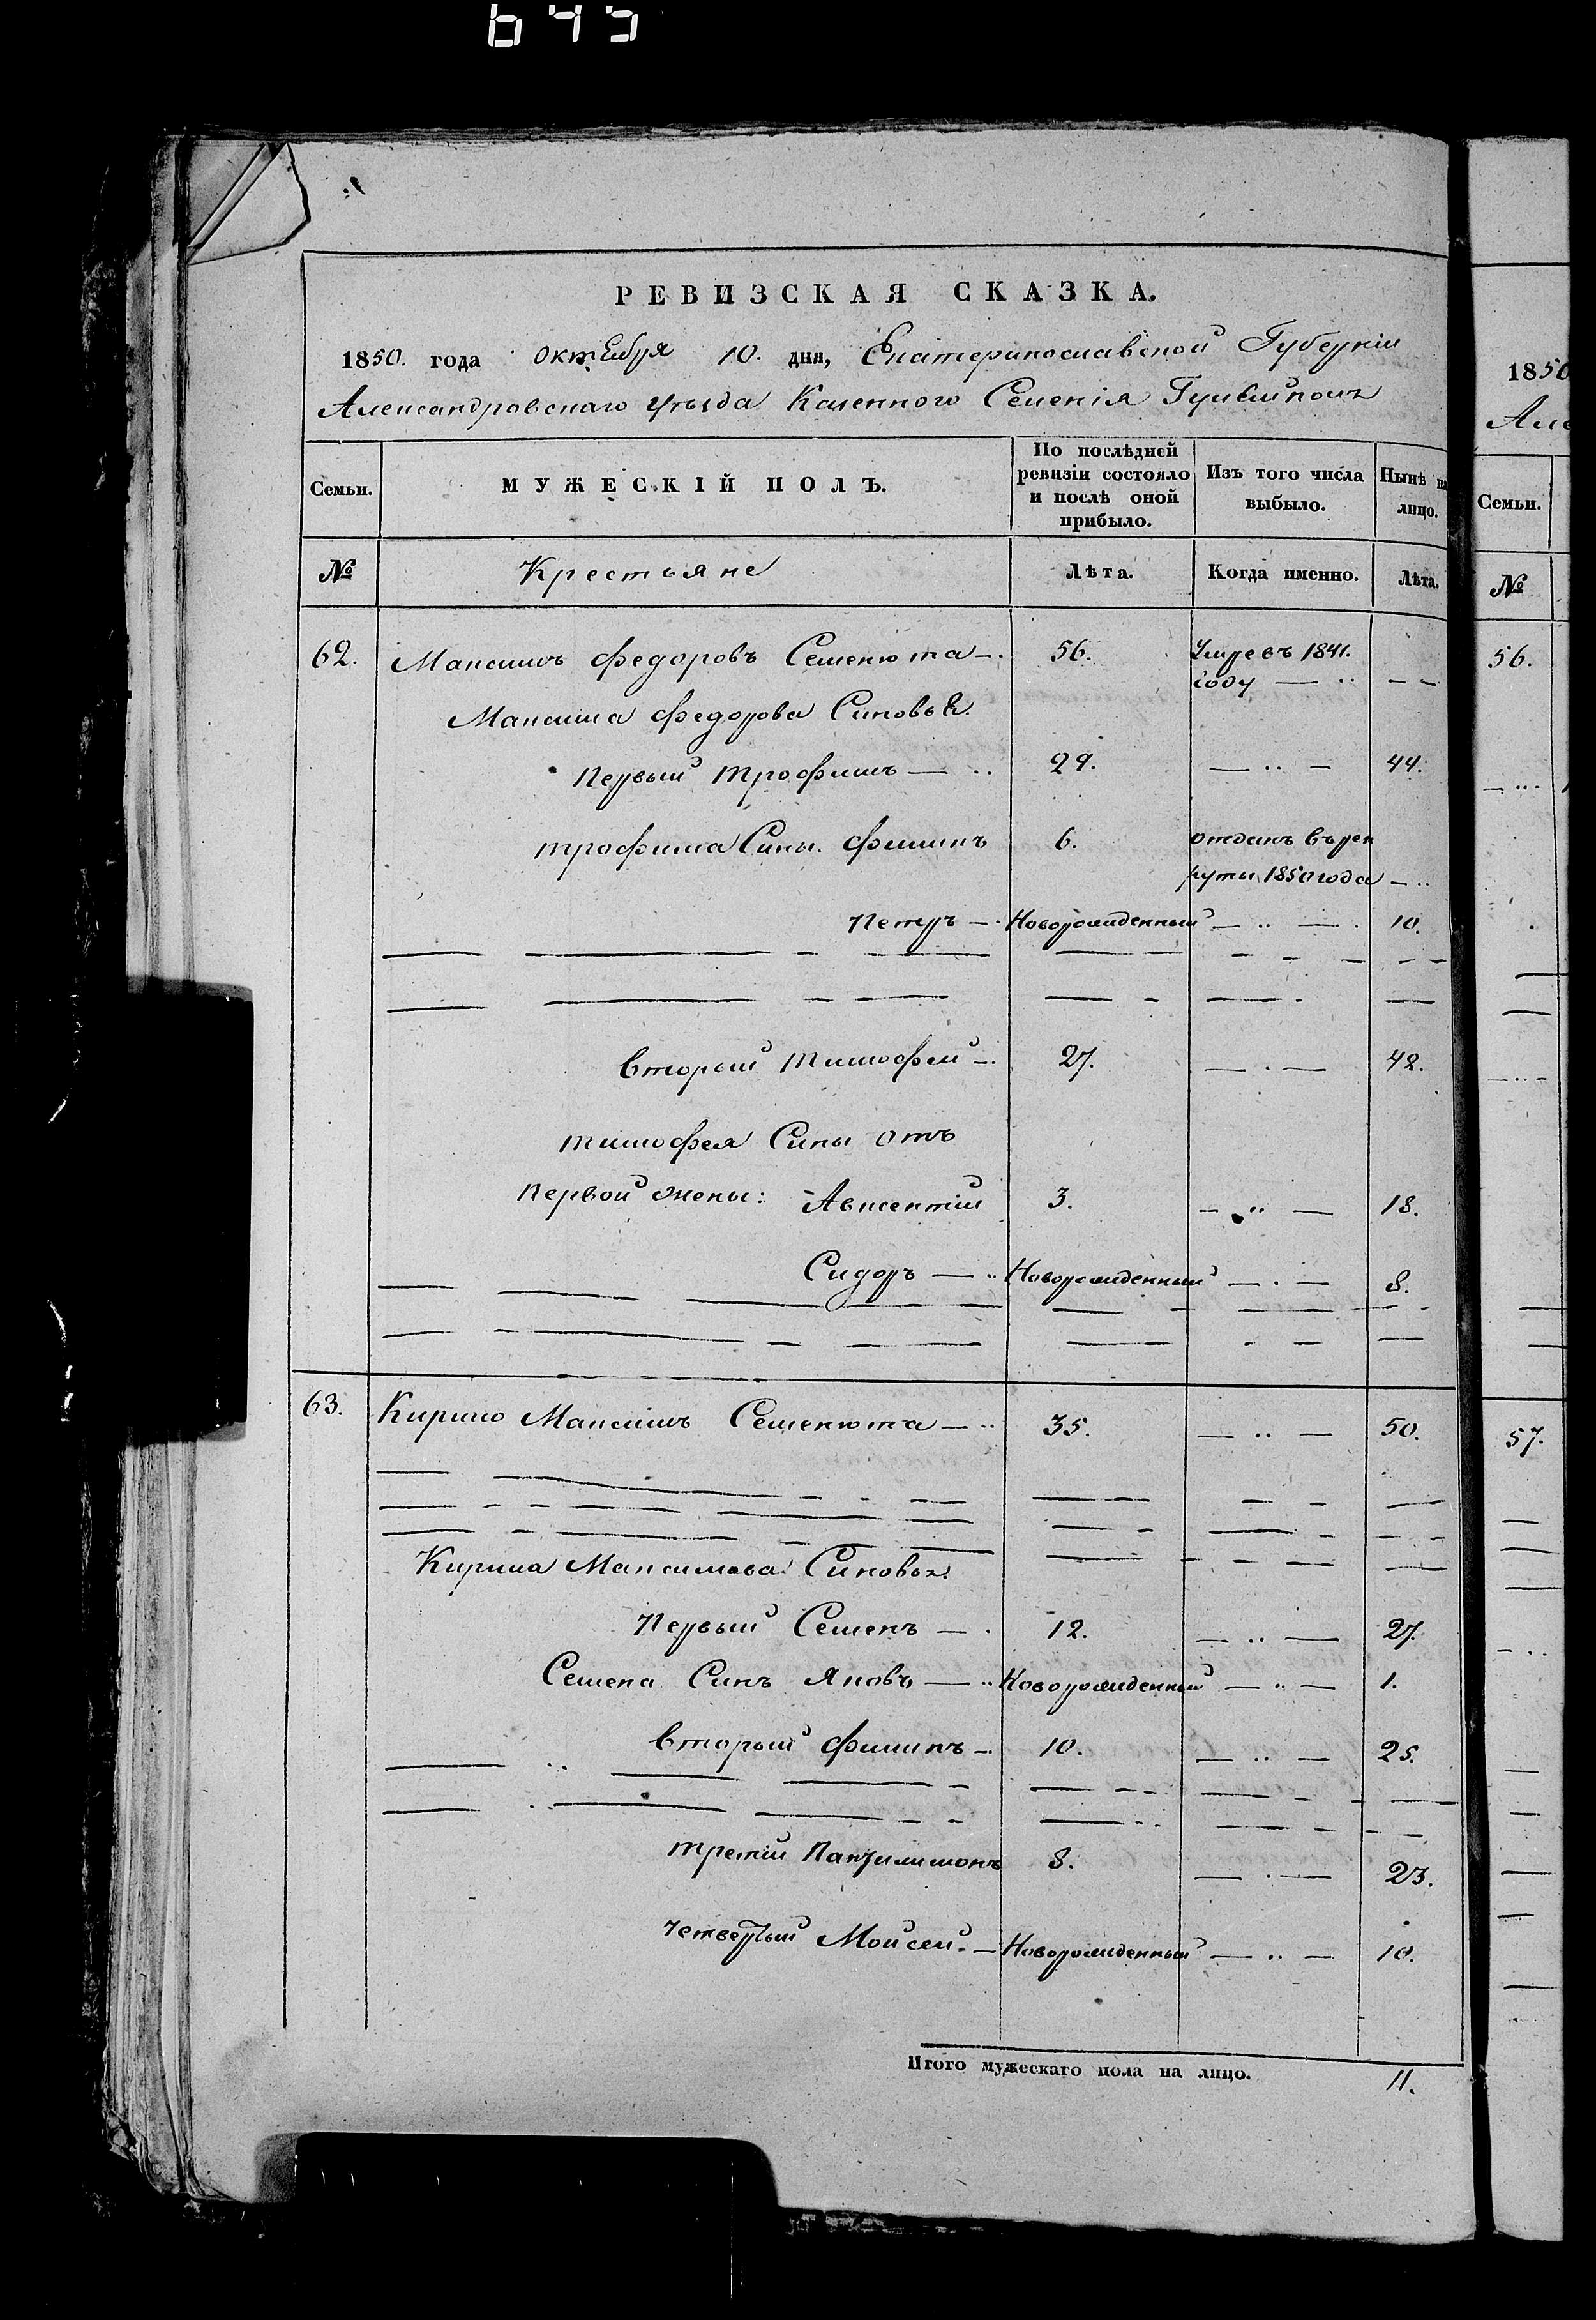 645
РЕВИЗСКАЯ СКАЗКА.
1850. года октября 10. дня, Екатеринославской Губернiи
Александровскаго уѣзда Казенного Селенiя
Семьи.
МУЖЕСКIЙ ПОЛЪ.
По послѣдней ревизiи состояло и послѣ оной прибыло.
Изъ того числа выбыло.
Нынѣ на лицо.
№
Крестьяне
Лѣта.
Когда именно.
Лѣта.
62. Максимъ Федоровъ Семенюта 56. Умре въ 1841.
году
Максима Федорова Синовья
Первый Трофимъ 29. 44.
Трофима Сины. Филипъ 6. отданъ въ рек
руты 1850 года
Петръ Новорожденный 10.
Вторый Тимофей 27. 42.
Тимофея Сины отъ
Первой жены: Авксентiй 3. 18.
Сидоръ Новорожденный 8.
63. Кирило Максимъ Семенюта 35. 50.
Кирила Максимова Синовья
Первый Семенъ 12. 27.
Семена Синъ Яковъ Новорожденный 1.
Вторый Филипъ 10. 25.
Третiй 8. 23.
Четвертый Мойсей Новорожденный 10.
Итого мужескаго пола на лицо. 11.
1850
Але
Семьи.
№
56.
57.